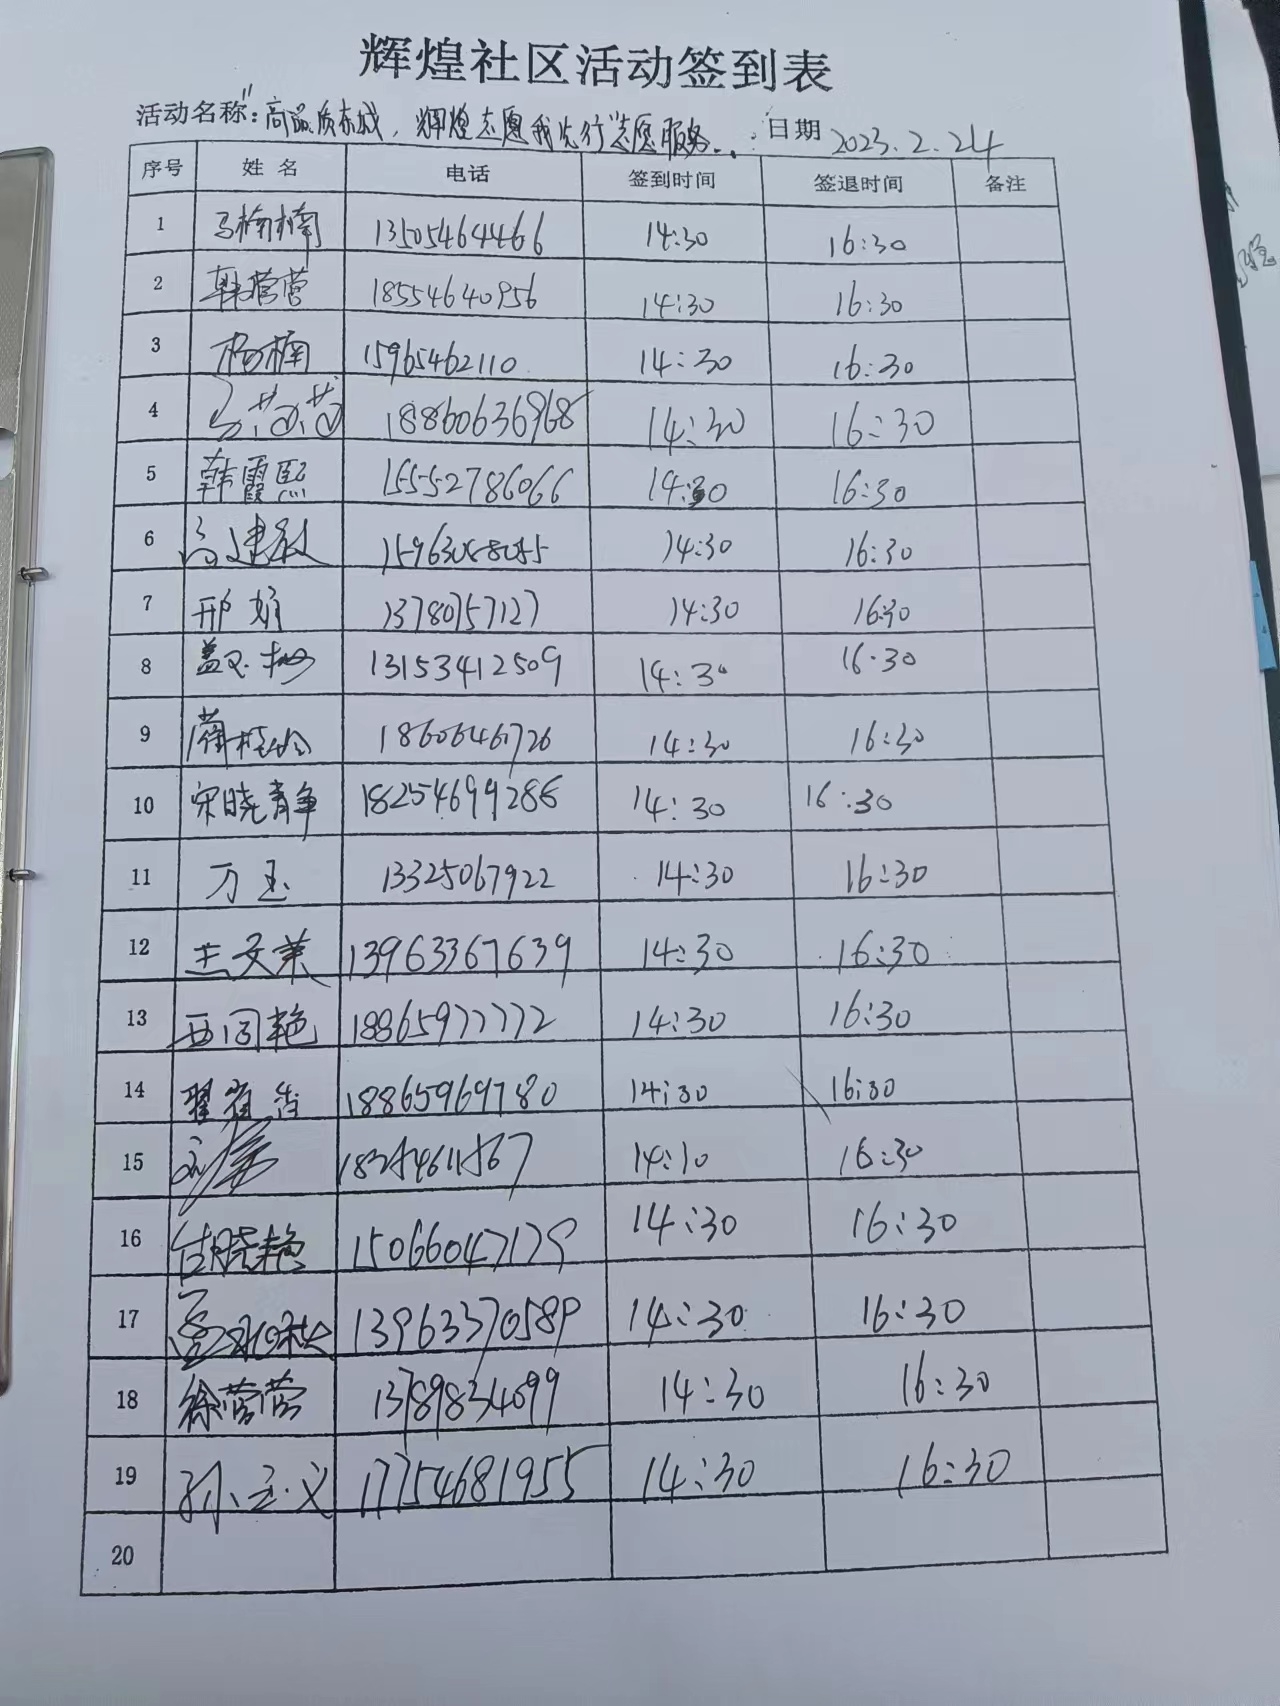 辉煌社区活动签到表
活动名称:"高品质东城，辉煌志愿我先行"志愿服务 日期 2023.2.24
序号 姓名 电话 签到时间 签退时间 备注
1 马楠楠 13505464466 14:30 16:30
2 韩营营 18554640956 14:30 16:30
3 杨楠 15965462110 14:30 16:30
4 18860636968 14:30 16:30
5 韩霞熙 15552786066 14:30 16:30
6 高建敏 14:30 16:30
7 邢娟 13780757127 14:30 16:30
8 盖玉梅 13153412509 14:30 16:30
9 18606461726 14:30 16:30
10 宋晓静 14:30 16:30
11 万玉 13325067922 14:30 16:30
12 王文美 13963367639 14:30 16:30
13 西同艳 18865977772 14:30 16:30
14 18865969780 14:30 16:30
15 14:10 16:30
16 晓艳 15066047179 14:30 16:30
17 14:30 16:30
18 徐营营 13789834099 14:30 16:30
19 孙玉义 17754681955 14:30 16:30
20